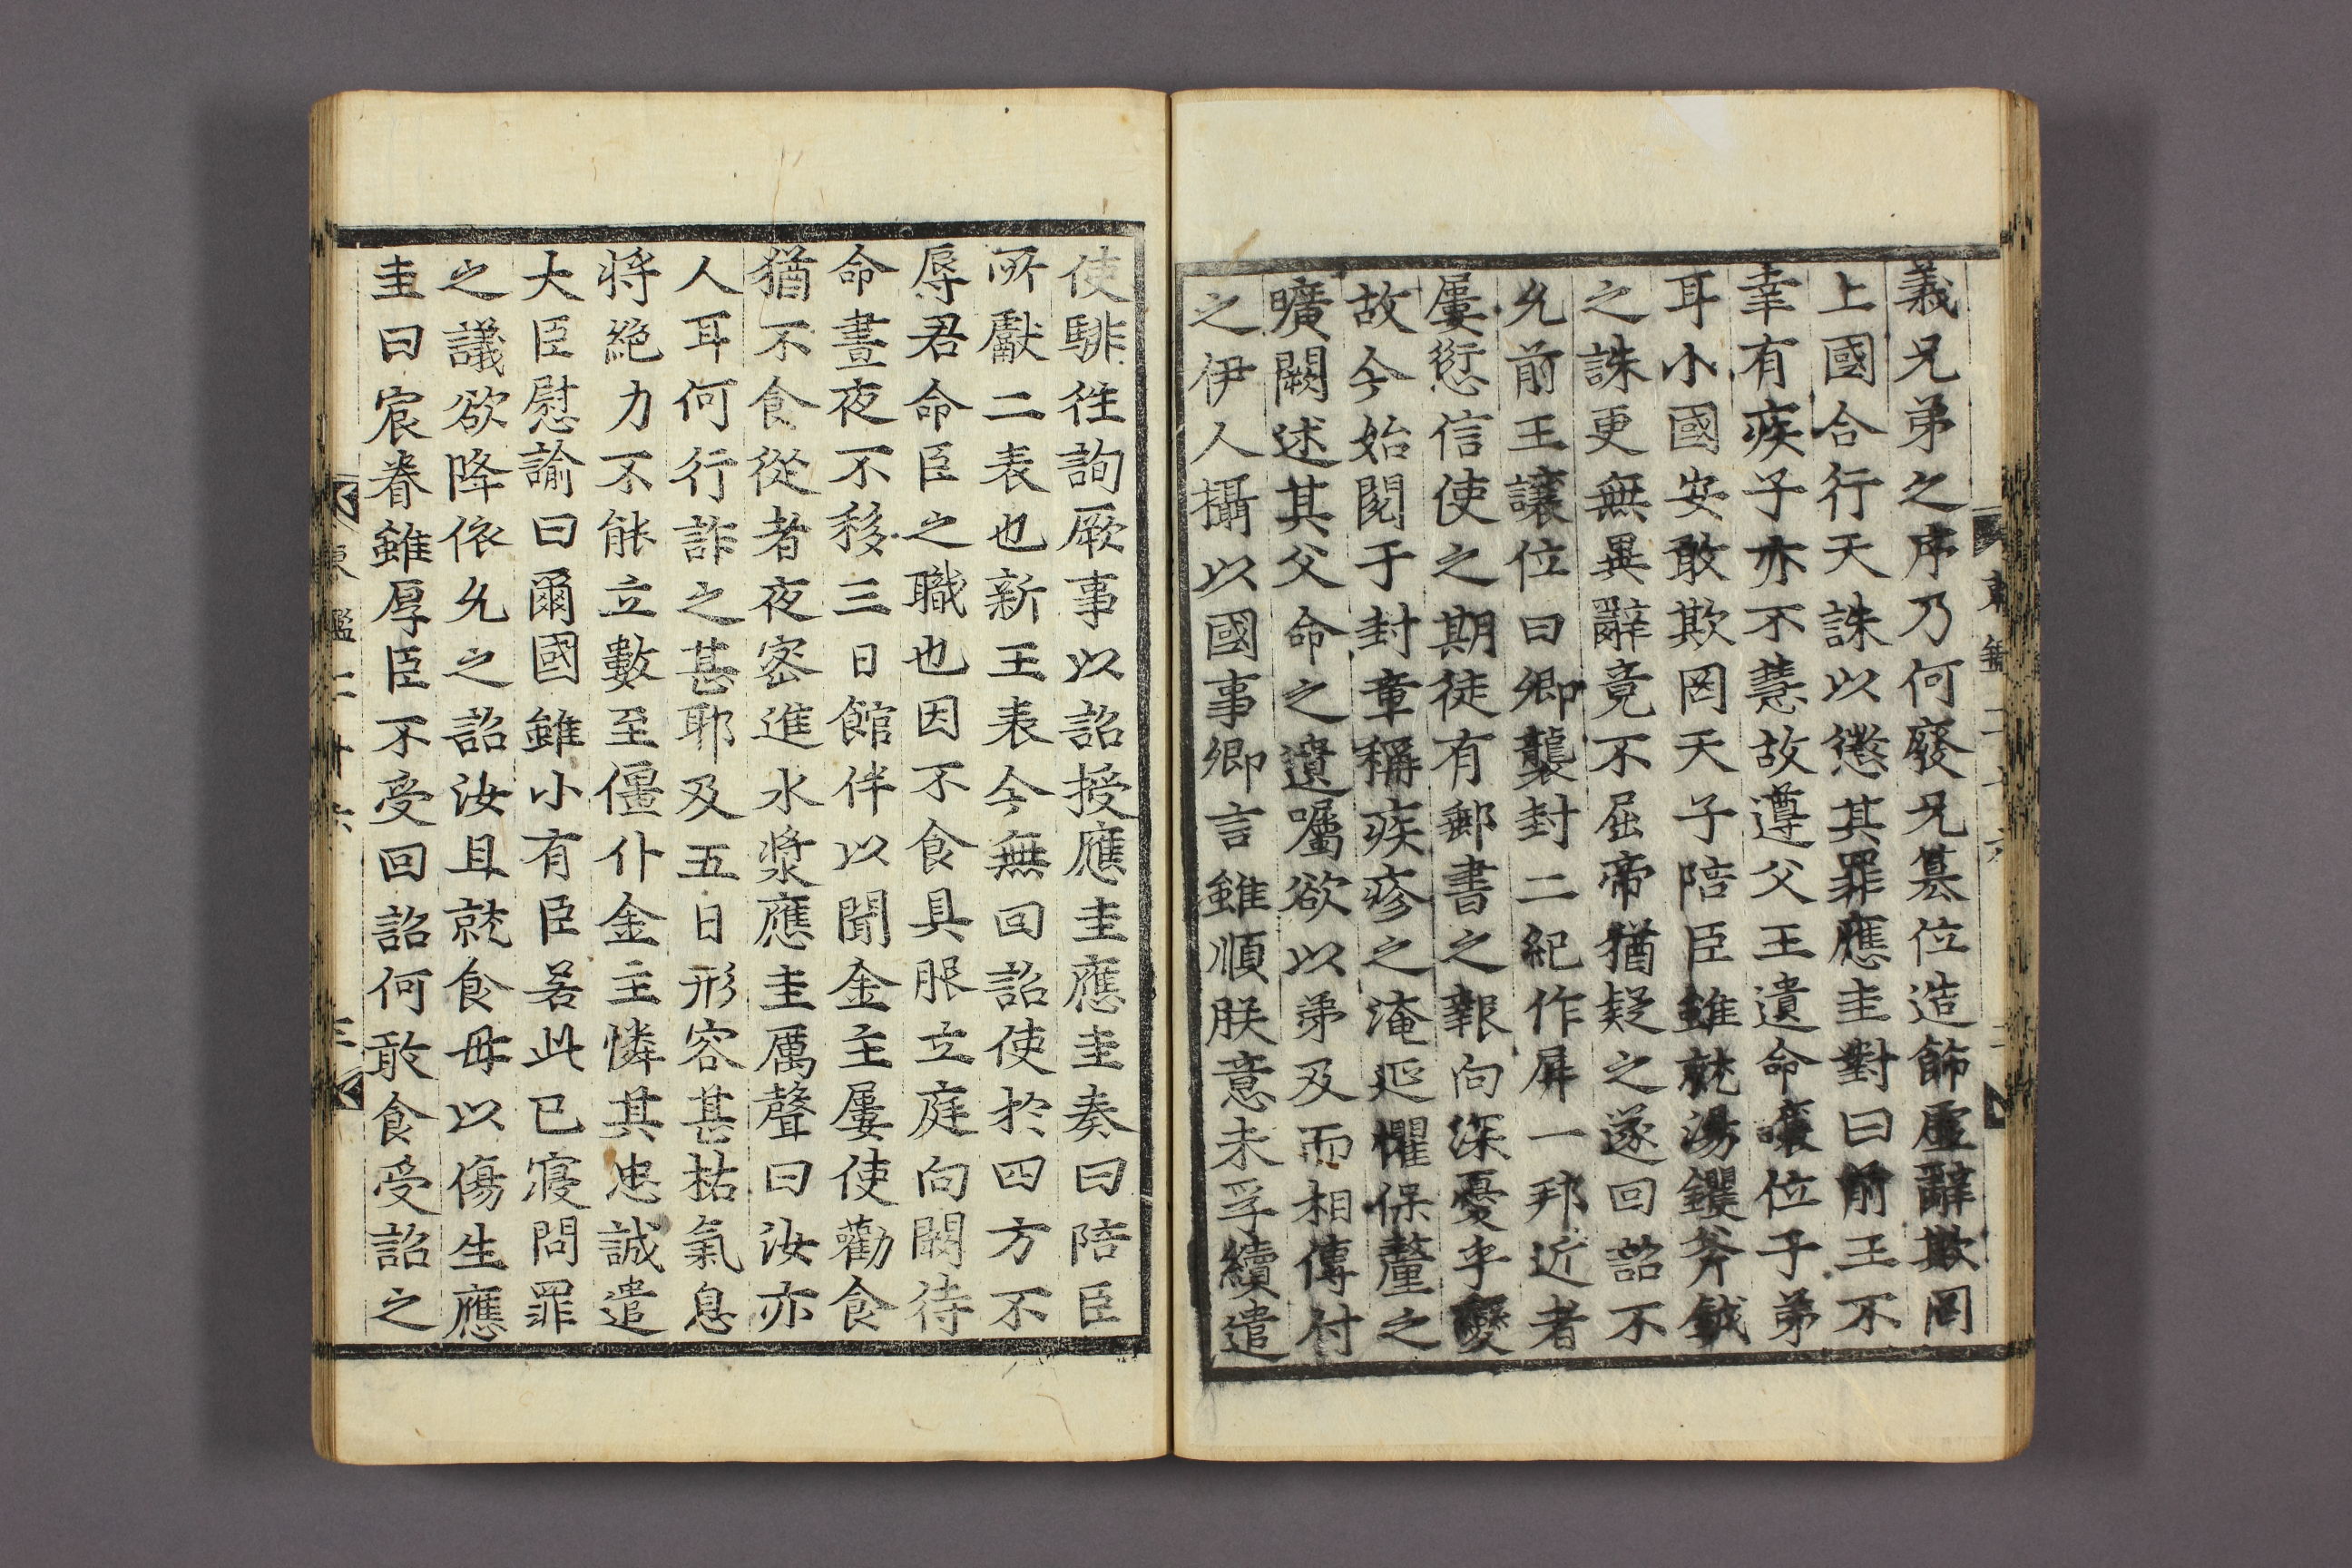 義兄弟之序乃何廢兄簒位造飾虛辭欺罔
上國合行天誅以懲其罪應圭對曰前王不
幸有疾子亦不慧故遵父王遺命讓位子弟
耳小國安敢欺罔天子陪臣雖就湯鑊斧鉞
之誅更無異辭竟不屈帝猶疑之遂回詔不
允前王讓位曰卿襲封二紀作屛一邦近者
屢愆信使之期徒有郵書之報向深憂乎變
故今始閱于封章稱疾疹之淹延懼保釐之
曠闕述其父命之遺囑欲以弟及而相傳付
之伊人攝以國事卿言雖順朕意未孚續遣
使騑徃詢厥事以詔授應圭應圭奏曰陪臣
所獻二表也新王表今無回詔使於四方不
辱君命臣之職也因不食具服立庭向闕待
命晝夜不移三日館伴以聞金主屢使勸食
猶不食從者夜密進水漿應圭厲聲曰汝亦
人耳何行詐之甚耶及五日形容甚枯氣息
將絶力不能立數至僵仆金主憐其忠誠遣
大臣慰諭曰爾國雖小有臣若此已寢問罪
之議欲降依允之詔汝且就食毋以傷生應
圭曰宸眷雖厚臣不受回詔何敢食受詔之